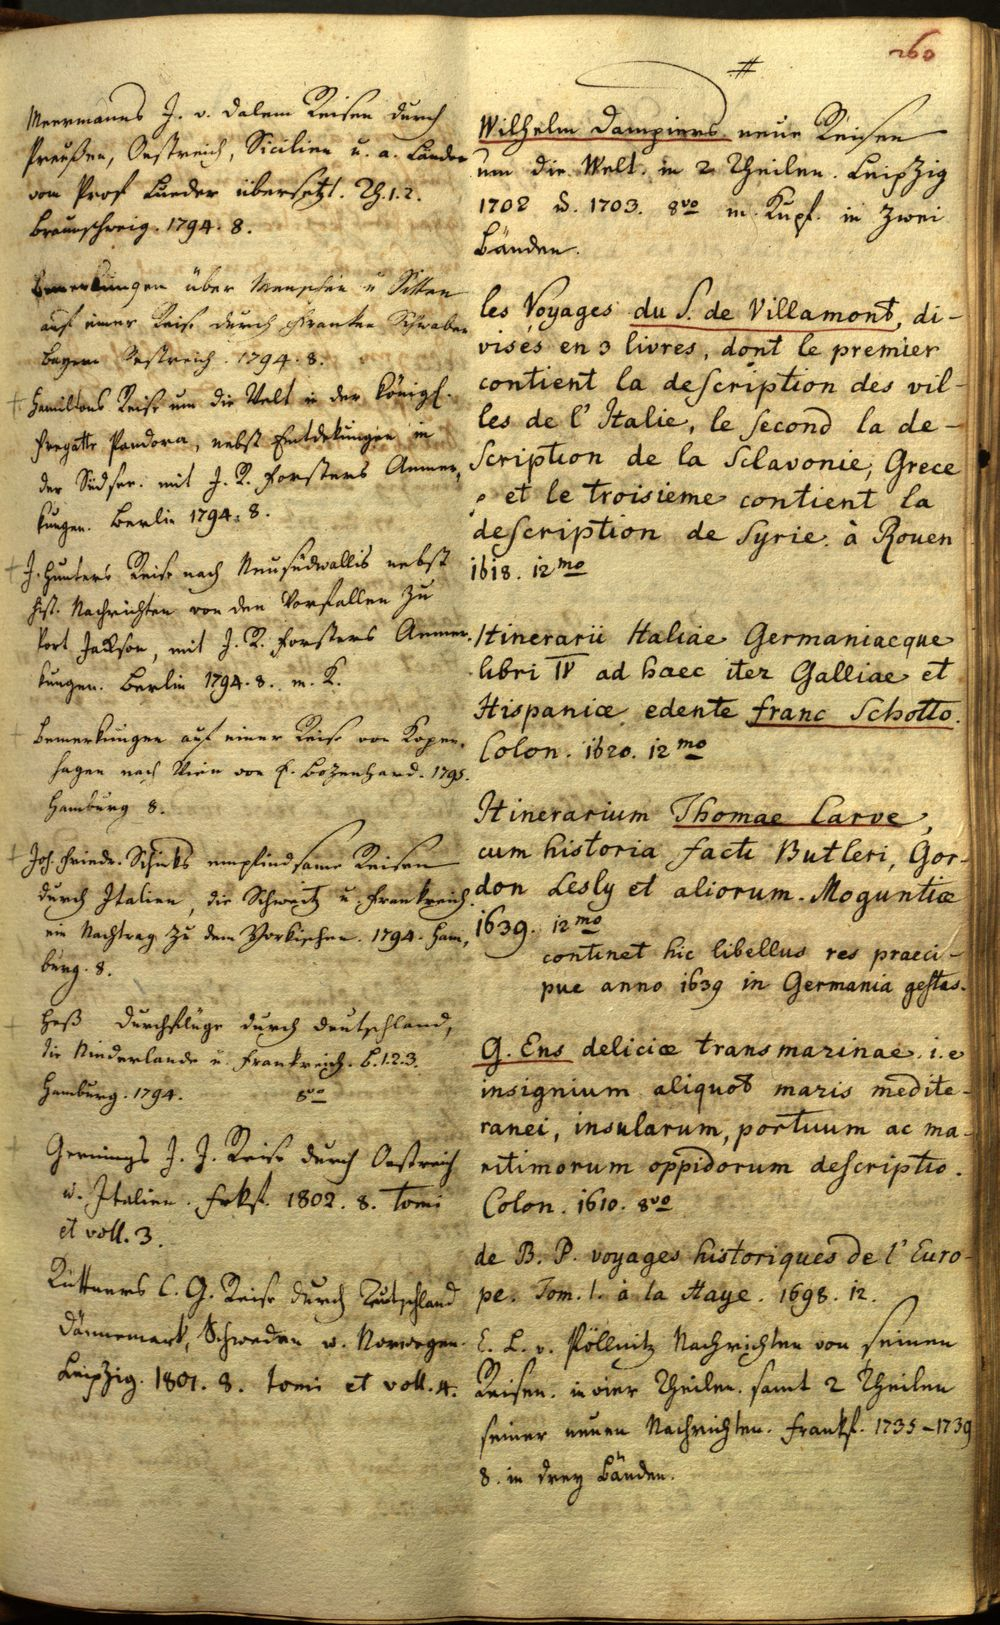 260
Meermanns J. v. Dalem Reisen durch
Preußen, Oestreich, Sicilien u. a. Länder
vom Prof Lueder übersetzt. Th. 1. 2.
Braunschweig. 1794. 8.
Bemerkungen über Menschen u Sitten
auf einer Reise durch Franken Schwaben
Bayern Oestreich. 1794. 8.
Hamiltons Reise um die Welt in der Königl.
Fregatte Pandora, nebst Entdekungen in
der Südsee. mit J. R. Forsters Anmer,
kungen. Berlin 1794. 8.
J. Hunters Reise nach Neusüdwallis nebst
hist. Nachrichten von den Vorfallen zu
Port Jackson, mit J. R. Forsters Anmer.
kungen. Berlin 1794. 8. m. K.
Bemerkungen auf einer Reise von Kopen,
hagen nach Wien von E. Bozenhard. 1795.
Hamburg 8.
Joh. Friedr. Schinks empfindsame Reisen
durch Italien, die Schweitz u. Frankreich.
ein Nachtrag zu dem Yorkischen. 1794. Ham,
burg. 8.
Heß Durchflüge durch Deutschland,
die Niederlande u. Frankreich. B. 1. 2. 3.
Hamburg. 1794. 8vo
Gernings J. J. Reise durch Oestreich
u. Italien. Frkf. 1802. 8. tomi
et voll. 3.
Küttners C. G. Reise durch Teutschland
Dännemark, Schweden u. Norwegen.
Leipzig. 1801. 8. tomi et voll. 4.
#
Wilhelm Dampiers neue Reisen
um die Welt. in 2 Theilen. Leipzig
1702 u. 1703. 8vo m. Kupf. in zwei
Bänden.
les Voyages du S. de Villamont, di-
visés en 3 livres, dont le premier
contient la description des vil-
les de l' Italie, le second la de-
scription de la Sclavonie, Grece
, et le troisieme contient la
description de Syrie. à Rouen
1618. 12mo
Itinerarii Italiae Germaniaeque
libri IV ad haec iter Galliae et
Hispaniæ edente franc Schotto.
Colon. 1620. 12mo
Itinerarium Thomae Carve,
cum historia facti Butleri, Gor-
don Lesly et aliorum. Moguntiæ
1639. 12mo
continet hic libellus res praeci-
pue anno 1639 in Germania gestas.
G. Ens deliciæ transmarinae. i. e
insignium aliquot maris medite-
ranei, insularum, portuum ac ma-
ritimorum oppidorum descriptio.
Colon. 1610. 8vo
de B. P. voyages historiques de l' Euro-
pe. Tom. 1. à la Haye. 1698. 12.
E. L. v. Pöllnitz Nachrichten von seinen
Reisen. in vier Theilen. samt 2 Theilen
seiner neuen Nachrichten. Frankf. 1735-1739
8. in drey Bänden.